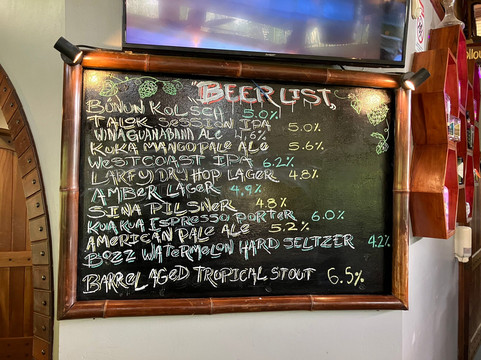 BEER LIST
BUNUN KOLSCH 5.0%
TALOK SESSION IPA 5.0%
WINA GUANABANA ALE 4.6%
KUKA MANGO PALE ALE 5.6%
WEST COAST IPA 6.2%
LARRY DRY HOP LAGER 4.8%
AMBER LAGER 4.9%
SINA PILSNER 4.8%
KUA KUA ESPRESSO PORTER 6.0%
AMERICAN PALE ALE 5.2%
BOZZ WATERMELON HARD SELTZER 4.2%
BARREL AGED TROPICAL STOUT 6.5%